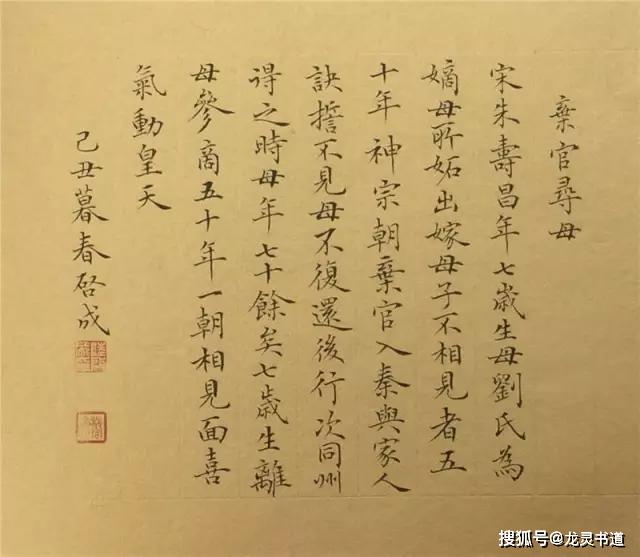 棄官尋母
宋朱壽昌年七歲生母劉氏為
嫡母所妬出嫁母子不相見者五
十年神宗朝棄官入秦與家人
訣誓不見母不復還後行次同州
得之時母年七十餘矣七歲生離
母參商五十年一朝相見面喜
氣動皇天
己丑暮春啓成
搜狐号@龙灵书道